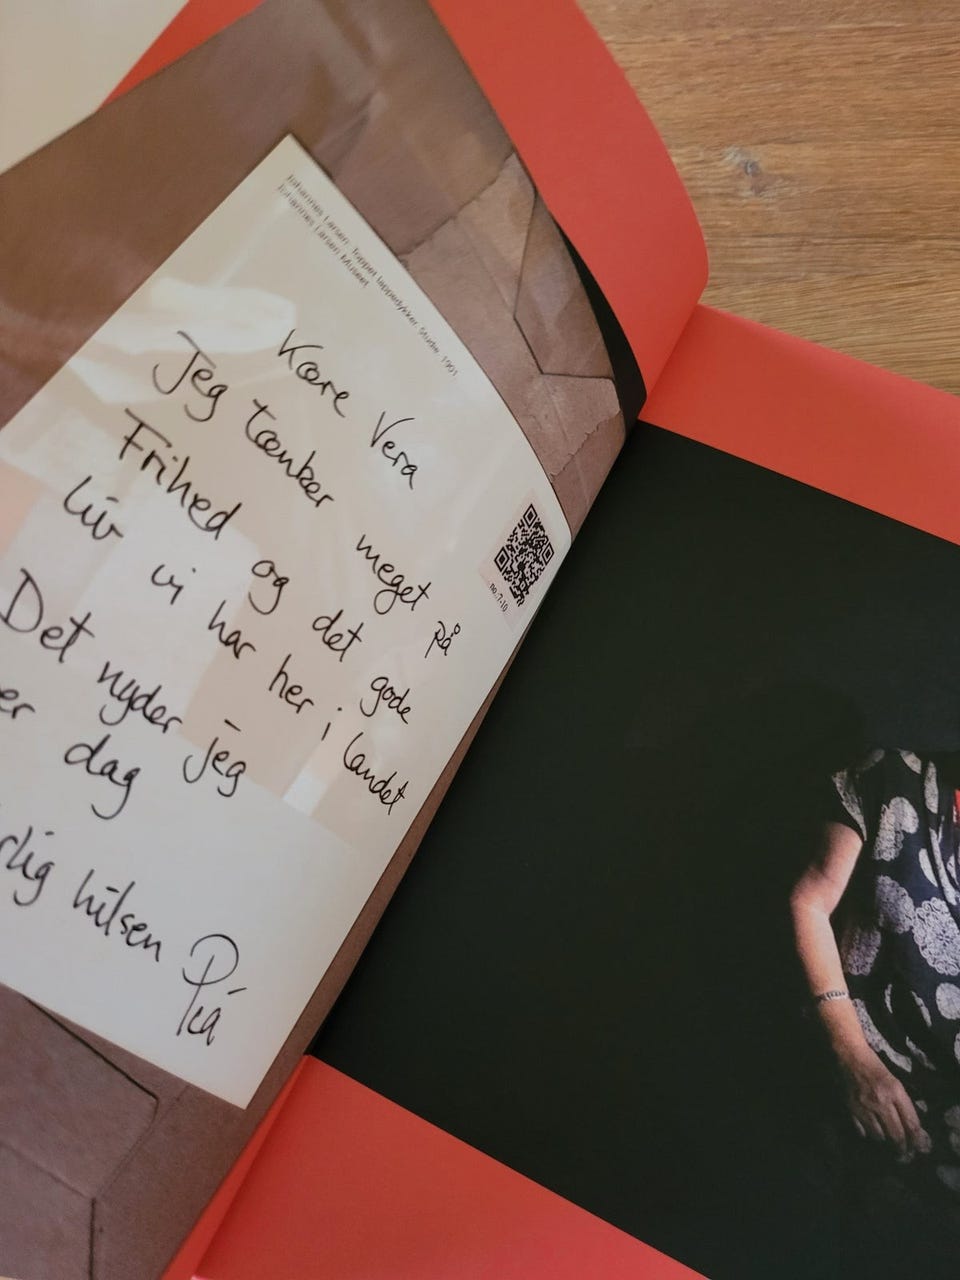 Johannes Larsen. Toppet lappedykker. Studie. 1901.
Johannes Larsen Museet
Kære Vera
Jeg tænker meget på
Frihed og det gode
liv vi har her i landet
Det nyder jeg
er dag
rlig hilsen
Pia
no. 7-10